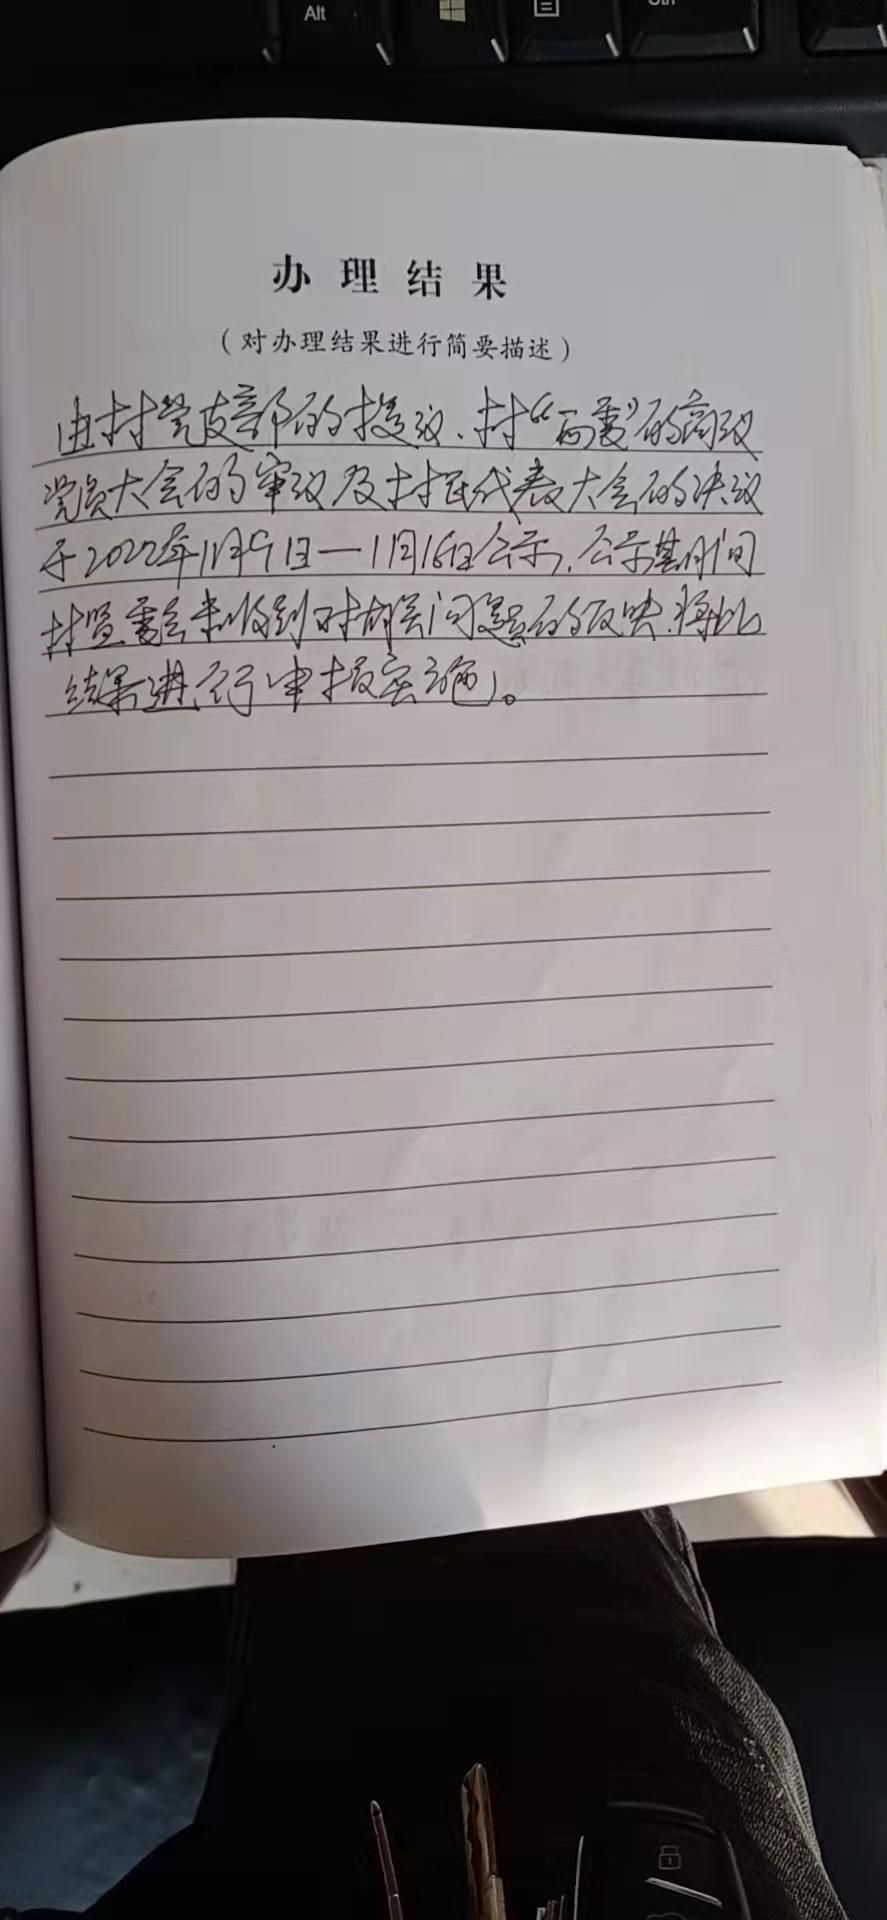 Alt
办理结果
（对办理结果进行简要描述）
由村党支部的提议、村“两委”的商议
党员大会的审议及村民代表大会的决议
于2022年1月9日—1月16日公示，公示期间
村监委会未收到对相关问题的反映，将此
结果进行申报实施。